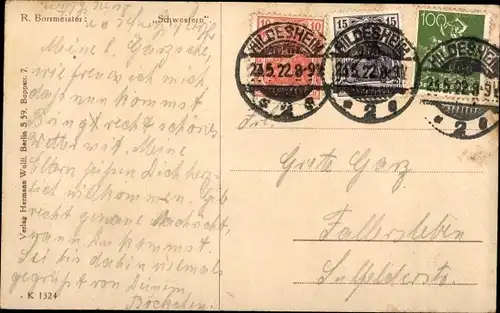 R. Borrmeister: „Schwestern"
Meine l. Garzsche,
wie freue ich mich
daß nun kommst
Bring recht schönes
Wetter mit. Meine
Eltern heißen Dich herz-
lich willkommen. Gib
recht genaue Nachricht,
wann Du kommst.
Sei bis dahin vielmals
gegrüßt von Deinem
Verlag Hermann Wolff, Berlin S 59, Boppstr. 7.
K 1324
10
15
100
HILDESHEIM
23.5.22.8-9V
* 2 e
HILDESHEIM
23.5.22.8-9V
* 2 e
HILDESHEIM
23.5.22.8-9V
* 2 e
Frl.
Grete Garz
Fallersleben